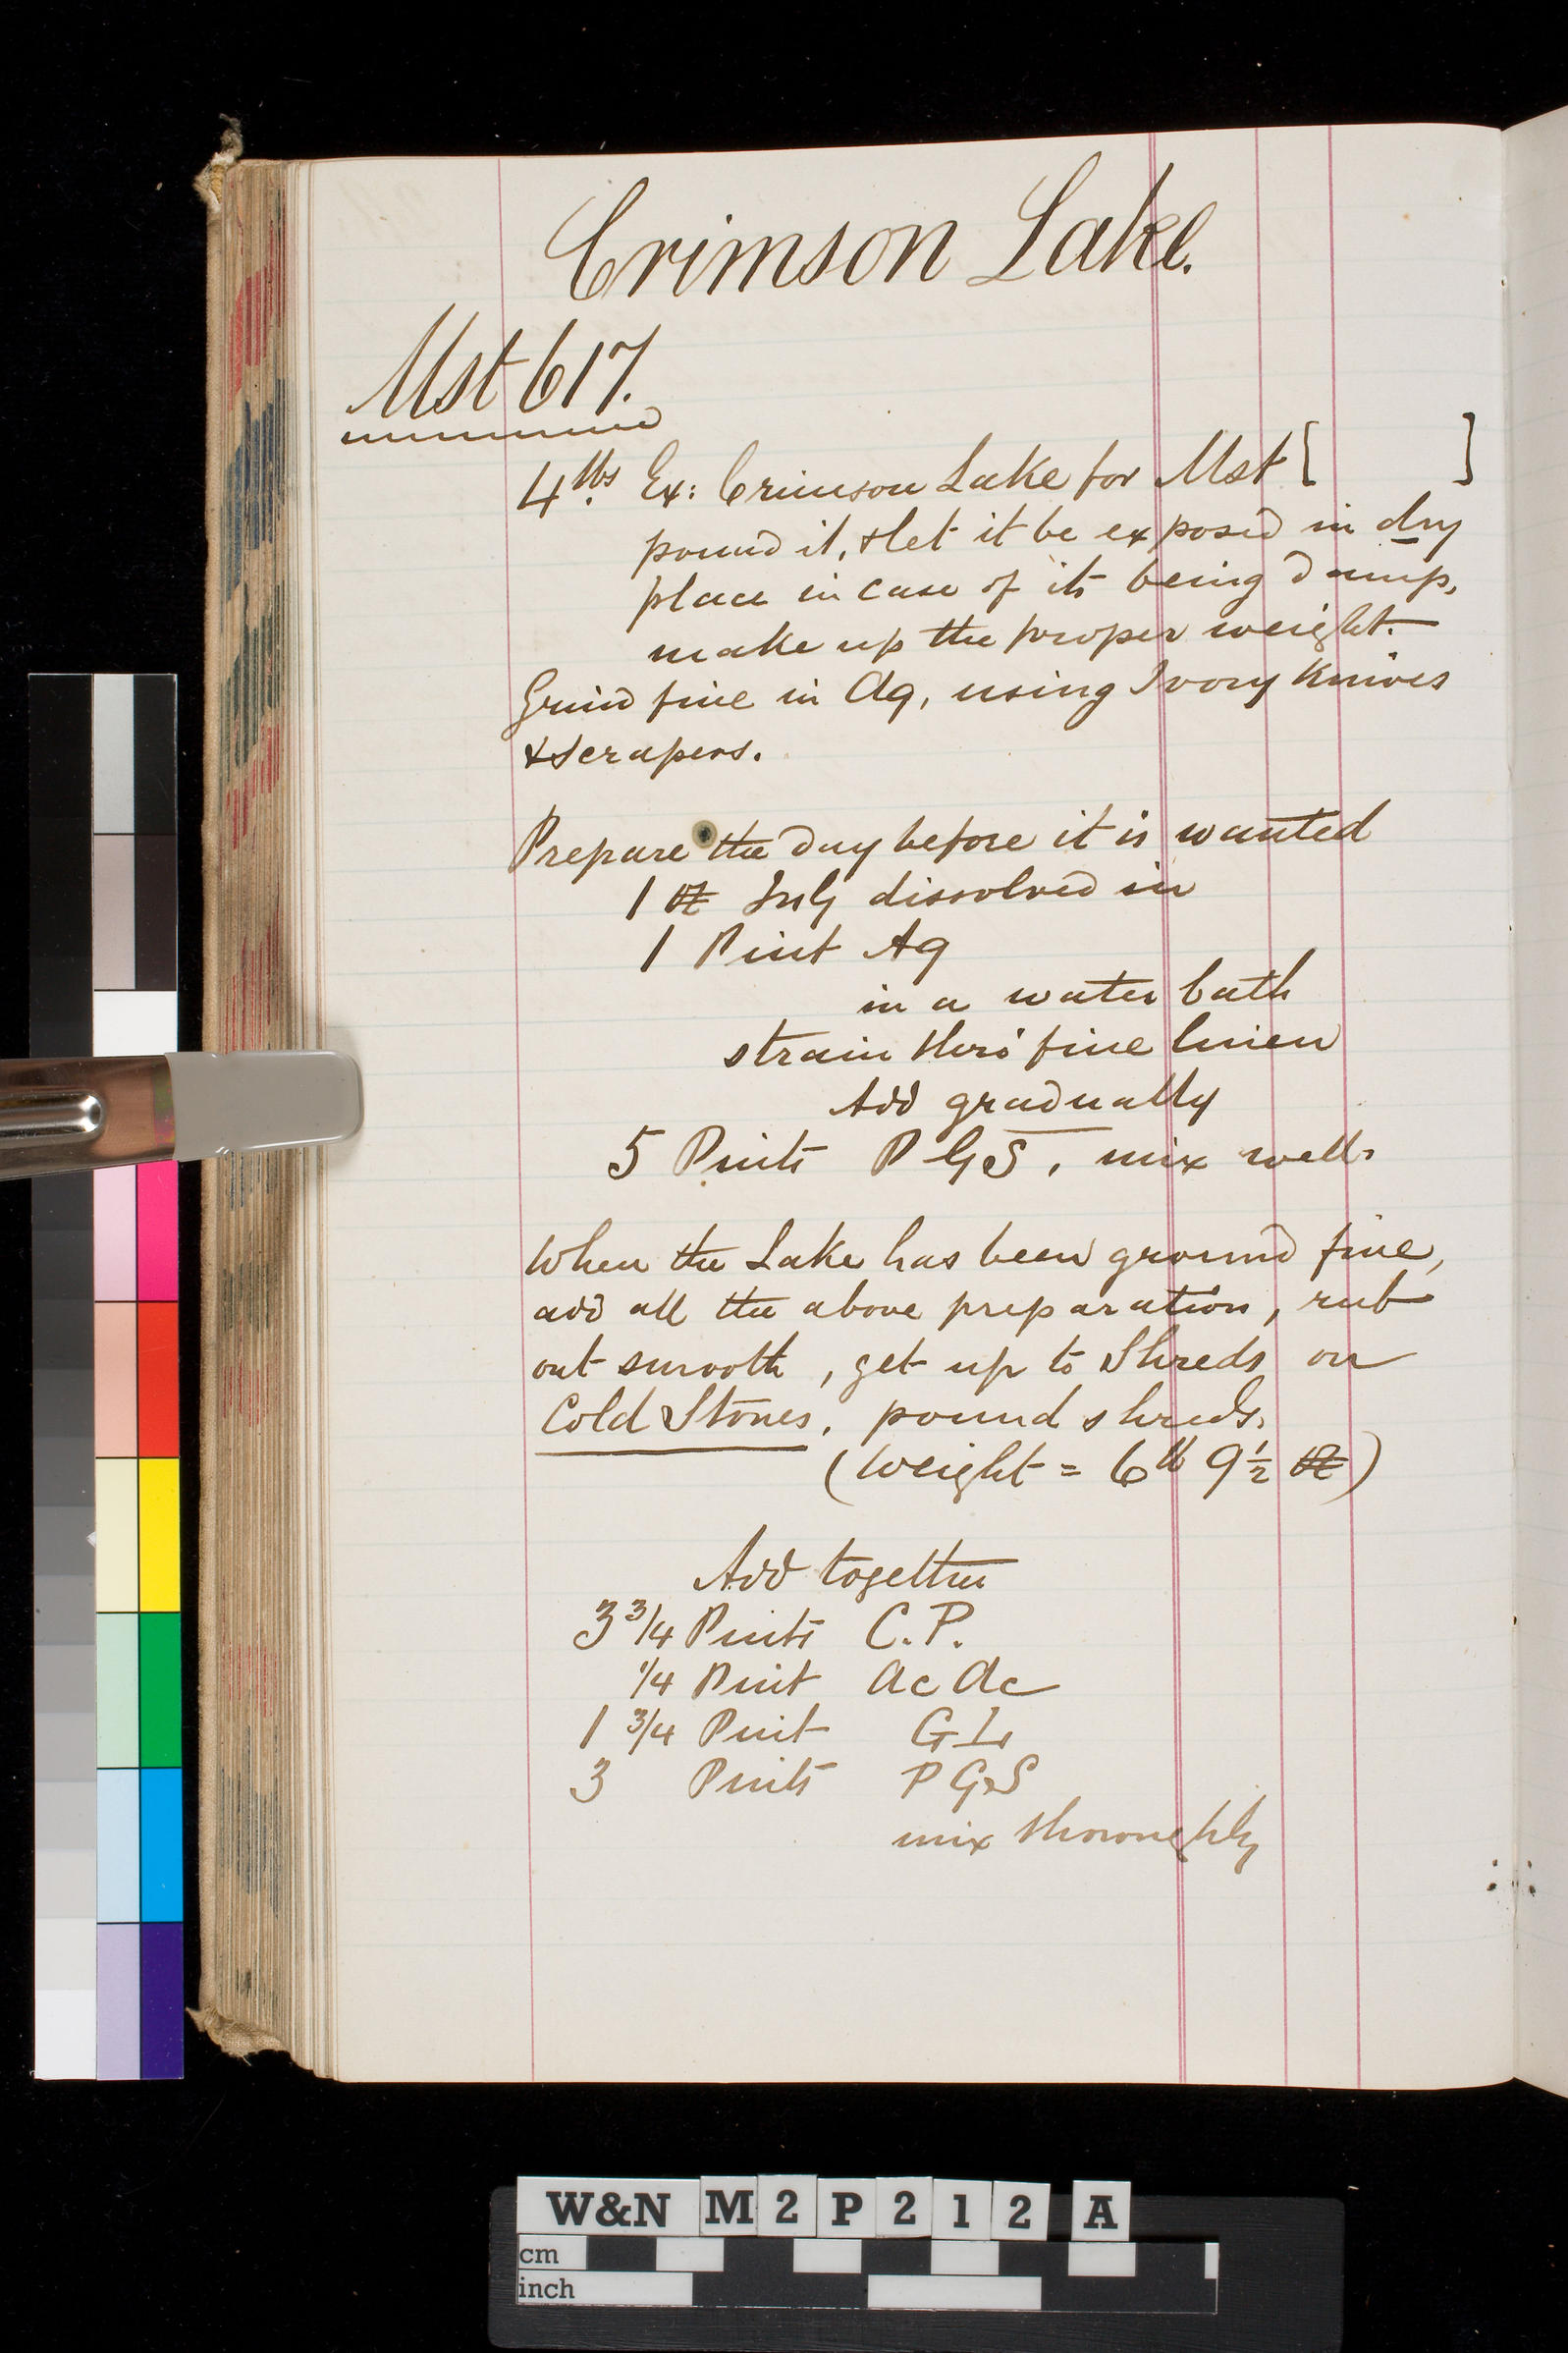 Crimson Lake.
Mst 617.
4 lbs Ex: Crimson Lake for Mst [ ]
pound it, & let it be exposed in dry
place in case of its being damp,
make up the proper weight.
Grind fine in Aq, using Ivory Knives
& scrapers.
Prepare the day before it is wanted
1 oz dissolved in
1 Pint Aq
in a water bath
strain thro' fine linen
Add gradually
5 Pints P G S, mix well.
When the Lake has been ground fine,
add all the above preparation, rub
out smooth, get up to Shreds on
Cold Stones, pound shreds.
(Weight = 6 lb 9 1/2 oz)
Add together
3 3/4 Pints C. P.
1/4 Pint Ac Ac
1 3/4 Pint G L
3 Pints P G S
mix thoroughly
W&N M2P212 A
cm
inch